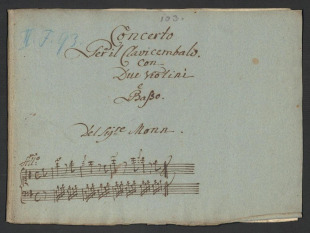 193.
II. F. 93
Concerto
Per il Clavicembalo.
con
Due Violini
e
Basso.
Del Sigre Monn.